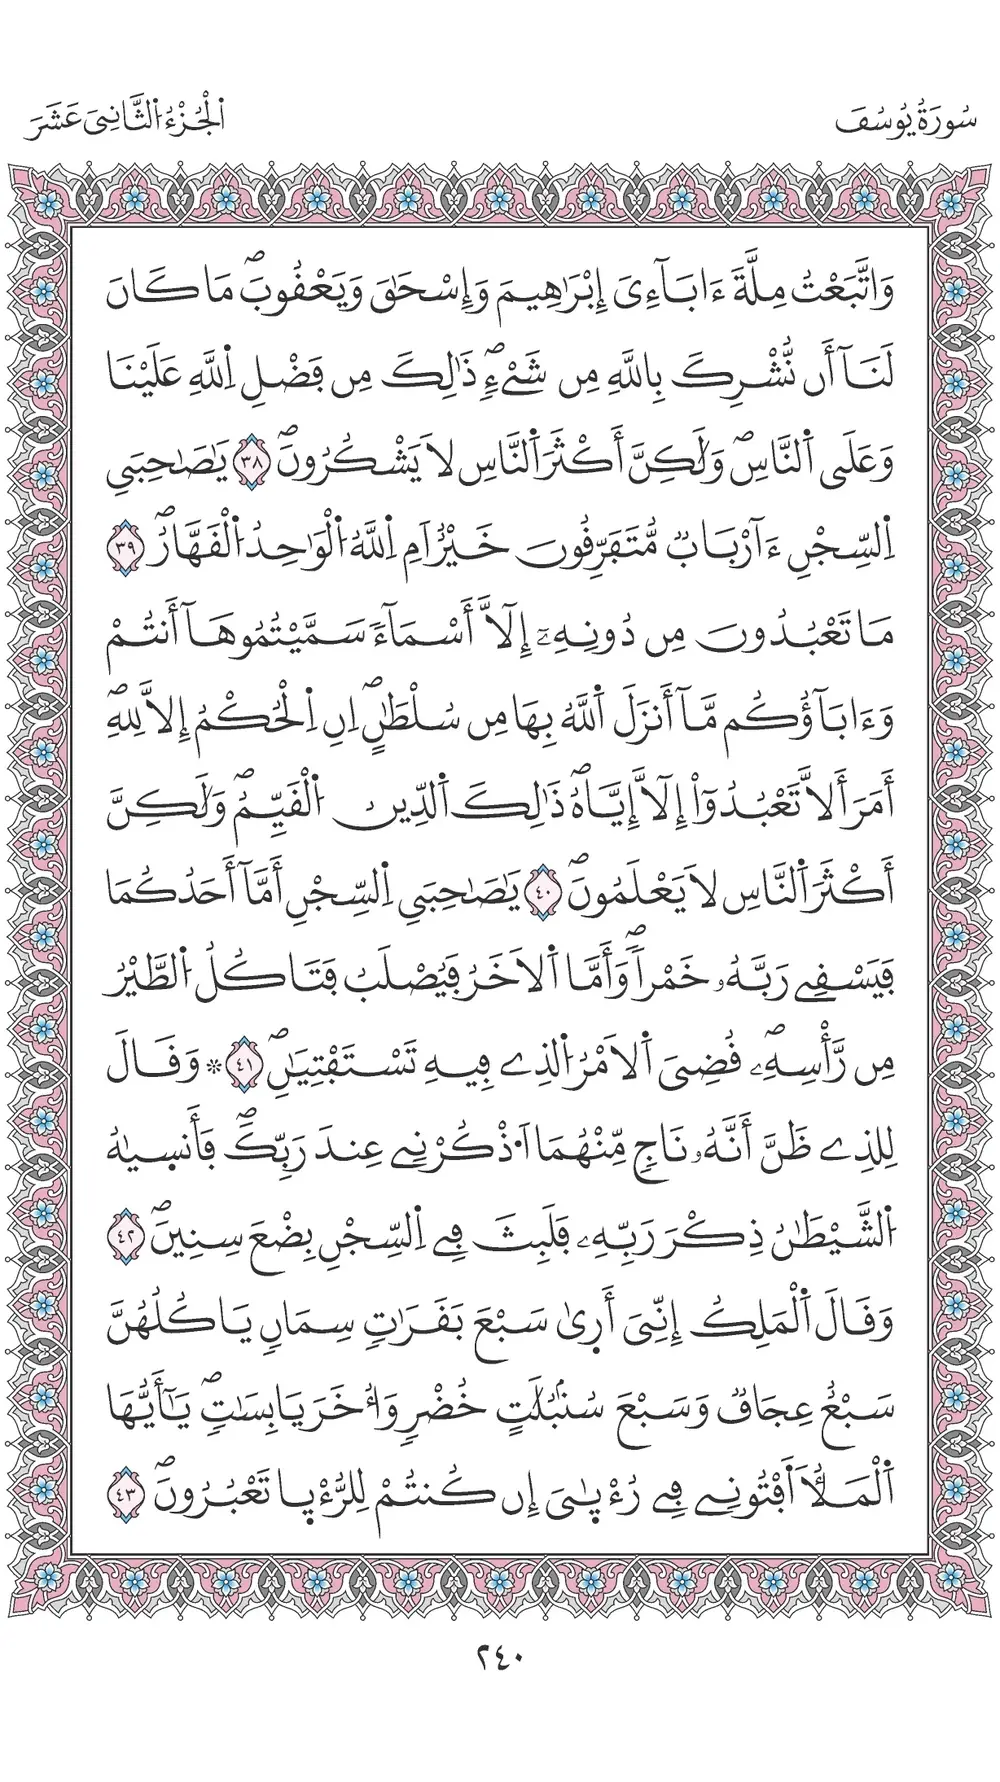 سُورَةُ يُوسُفَ
اَ۬لْجُزْءُ اُ۬لثَّانِيَ عَشَرَ
وَاتَّبَعْتُ مِلَّةَ ءَابَآءِيَ إِبْرَٰهِيمَ وَإِسْحَٰقَ وَيَعْقُوبَۖ مَا كَانَ
لَنَآ أَن نُّشْرِكَ بِاللَّهِ مِن شَيْءٖۖ ذَٰلِكَ مِن فَضْلِ اِ۬للَّهِ عَلَيْنَا
وَعَلَى اَ۬لنَّاسِۖ وَلَٰكِنَّ أَكْثَرَ اَ۬لنَّاسِ لَا يَشْكُرُونَۖ ٣٨ يَٰصَٰحِبَيِ
اِ۬لسِّجْنِ ءَآرْبَابٞ مُّتَفَرِّقُونَ خَيْرٌ اَمِ اِ۬للَّهُ اُ۬لْوَٰحِدُ اُ۬لْقَهَّارُۖ ٣٩
مَا تَعْبُدُونَ مِن دُونِهِۦٓ إِلَّآ أَسْمَآءٗ سَمَّيْتُمُوهَآ أَنتُمْ
وَءَابَآؤُكُم مَّآ أَنزَلَ اَ۬للَّهُ بِهَا مِن سُلْطَٰنٍۖ اِنِ اِ۬لْحُكْمُ إِلَّا لِلهِۖ
أَمَرَ أَلَّا تَعْبُدُوٓاْ إِلَّآ إِيَّاهُۖ ذَٰلِكَ اَ۬لدِّينُ اُ۬لْقَيِّمُۖ وَلَٰكِنَّ
أَكْثَرَ اَ۬لنَّاسِ لَا يَعْلَمُونَۖ ٤٠ يَٰصَٰحِبَيِ اِ۬لسِّجْنِ أَمَّآ أَحَدُكُمَا
فَيَسْقِے رَبَّهُۥ خَمْراٗۖ وَأَمَّا اَ۬لَاخَرُ فَيُصْلَبُ فَتَاكُلُ اُ۬لطَّيْرُ
مِن رَّأْسِهِۦۖ قُضِيَ اَ۬لَامْرُ اُ۬لذِے فِيهِ تَسْتَفْتِيَٰنِۖ ٤١ ۞ وَقَالَ
لِلذِے ظَنَّ أَنَّهُۥ نَاجٖ مِّنْهُمَا اَ۟ذْكُرْنِے عِندَ رَبِّكَۖ فَأَنس۪يٰهُ
اُ۬لشَّيْطَٰنُ ذِكْرَ رَبِّهِۦ فَلَبِثَ فِے اِ۬لسِّجْنِ بِضْعَ سِنِينَۖ ٤٢
وَقَالَ اَ۬لْمَلِكُ إِنِّيَ أَر۪يٰ سَبْعَ بَقَرَٰتٖ سِمَانٖ يَاكُلُهُنَّ
سَبْعٌ عِجَافٞ وَسَبْعَ سُنۢبُلَٰتٍ خُضْرٖ وَأُخَرَ يَابِسَٰتٖۖ يَٰٓأَيُّهَا
اَ۬لْمَلَأُ اَفْتُونِے فِے رُءْيٰ۪يَ إِن كُنتُمْ لِلرُّءْي۪ا تَعْبُرُونَۖ ٤٣
٢٤٠